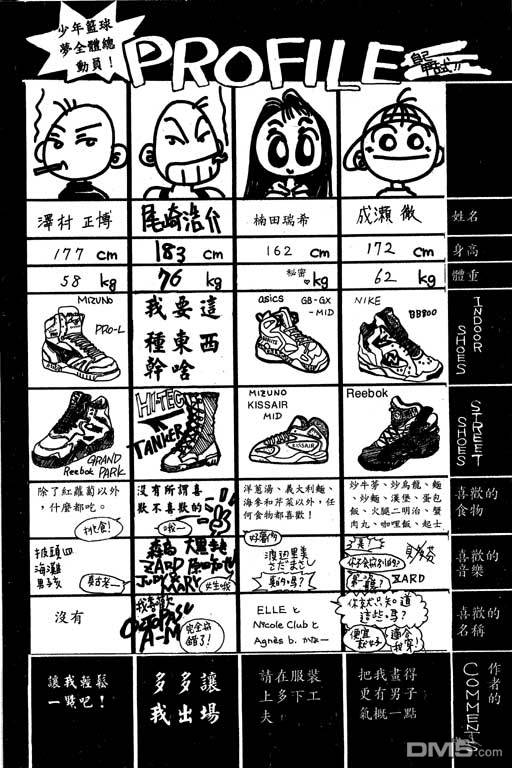 少年籃球
夢全體總
動員！
PROFILE
澤村 正博
尾崎浩介
楠田瑞希
成瀨 徹
姓名
177 cm
183 cm
162 cm
172 cm
身高
58 kg
76 kg
秘密 kg
62 kg
體重
MIZUNO
PRO-L
我要這
種東西
幹啥
asics GB-GX
-MID
NIKE
BB800
INDOOR SHOES
GRAND
Reebok PARK
HI-TEC
TANKER
MIZUNO
KISSAIR
MID
Reebok
STREET SHOES
除了紅蘿蔔以外
，什麼都吃。
挑食！
沒有所謂喜
歡不喜歡的
洋蔥湯、義大利麵、
海參和芹菜以外，任
何食物都喜歡！
炒牛蒡、炒烏龍、麵
、炒麵、漢堡、蛋包
飯、火腿二明治、蟹
肉丸、咖哩飯、起士
喜歡的
食物
披頭四
海灘
男孩
ZARD
JUDY MARY
渡辺里美
さだまさし
真的嗎？
ZARD
喜歡的
音樂
沒有
我喜歡
A-M
完全搞
錯了！
ELLE と
Nicole Club と
Agnès b. かな—
你就只知道
這些嗎？
便宜
適合
我穿！
喜歡的
名稱
讓我輕鬆
一點吧！
多多讓
我出場
請在服裝
上多下工
夫
把我畫得
更有男子
氣概一點
作者的
COMMENT
DM5.com